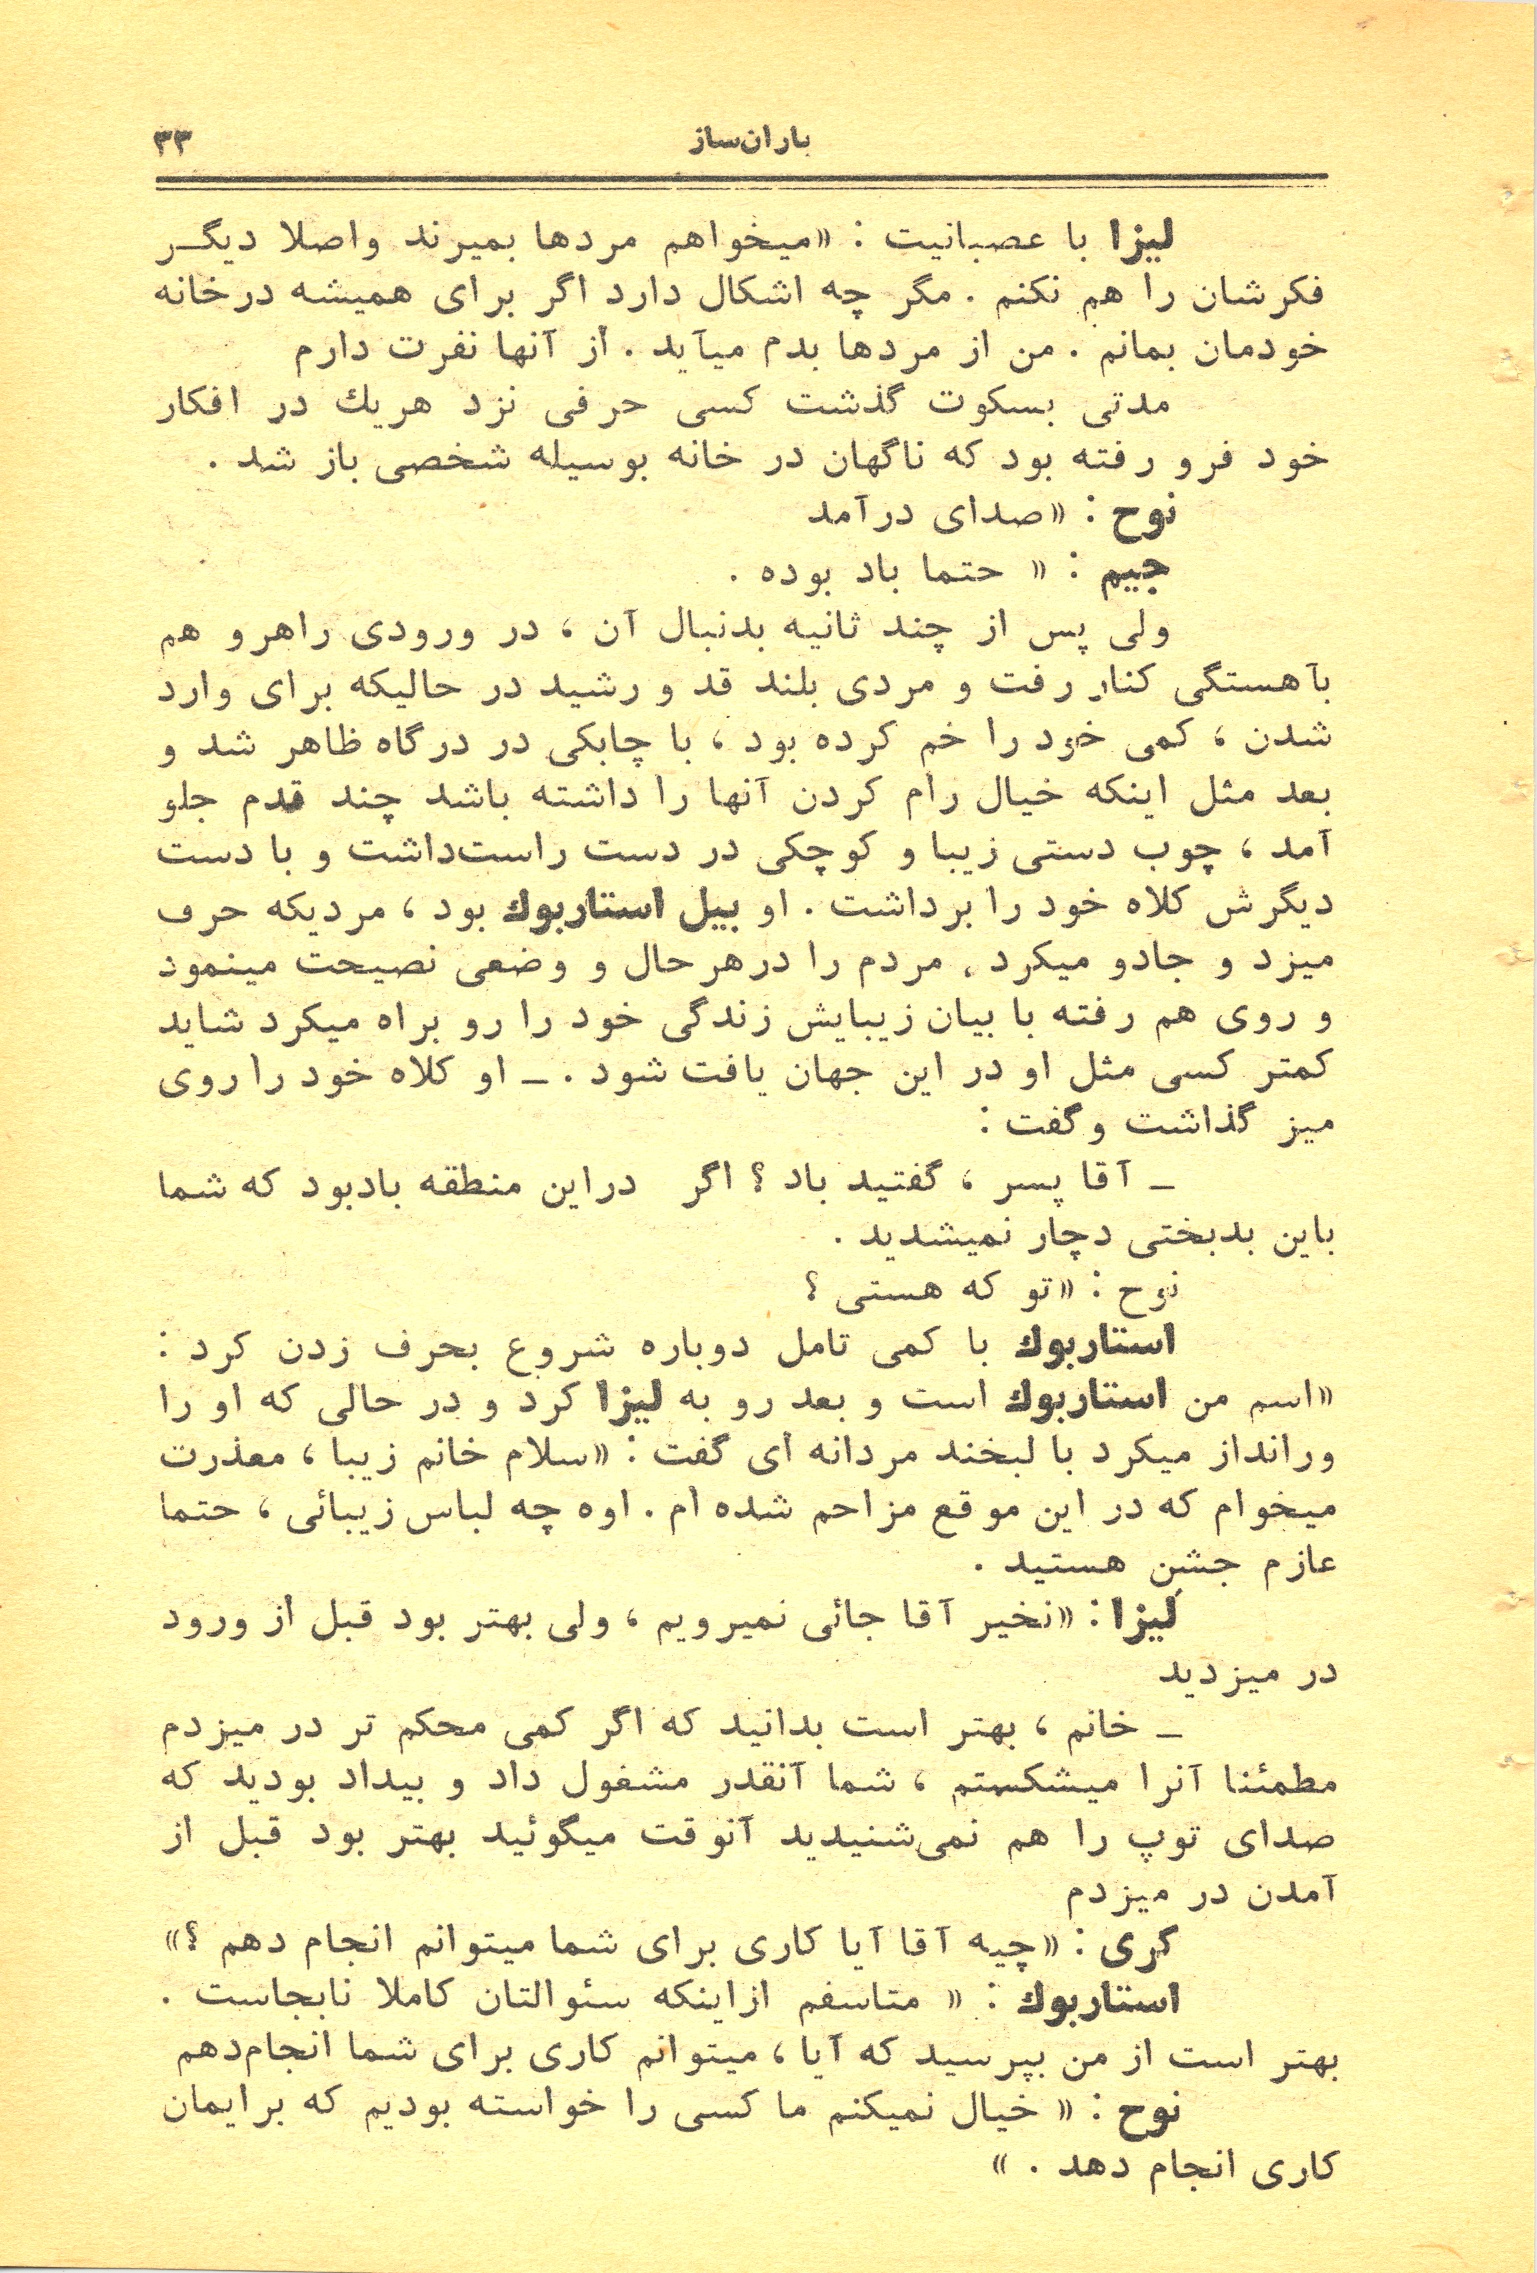 باران‌ساز ۳۳
لیزا با عصبانیت : «میخواهم مردها بمیرند واصلا دیگـر
فکرشان را هم نکنم . مگر چه اشکال دارد اگر برای همیشه درخانه
خودمان بمانم . من از مردها بدم میآید . از آنها نفرت دارم
مدتی بسکوت گذشت کسی حرفی نزد هریك در افکار
خود فرو رفته بود که ناگهان در خانه بوسیله شخصی باز شد .
نوح : «صدای درآمد
جیم : « حتما باد بوده .
ولی پس از چند ثانیه بدنبال آن ، در ورودی راهرو هم
بآهستگی کنار رفت و مردی بلند قد و رشید در حالیکه برای وارد
شدن ، کمی خود را خم کرده بود ، با چابکی در درگاه ظاهر شد و
بعد مثل اینکه خیال رام کردن آنها را داشته باشد چند قدم جلو
آمد ، چوب دستی زیبا و کوچکی در دست راست‌داشت و با دست
دیگرش کلاه خود را برداشت . او بیل استاربوك بود ، مردیکه حرف
میزد و جادو میکرد ، مردم را درهرحال و وضعی نصیحت مینمود
و روی هم رفته با بیان زیبایش زندگی خود را رو براه میکرد شاید
کمتر کسی مثل او در این جهان یافت شود . ــ او کلاه خود را روی
میز گذاشت وگفت :
ــ آقا پسر ، گفتید باد ؟ اگر دراین منطقه بادبود که شما
باین بدبختی دچار نمیشدید .
نوح : «تو که هستی ؟
استاربوك با کمی تامل دوباره شروع بحرف زدن کرد :
«اسم من استاربوك است و بعد رو به لیزا کرد و در حالی که او را
ورانداز میکرد با لبخند مردانه ای گفت : «سلام خانم زیبا ، معذرت
میخوام که در این موقع مزاحم شده ام . اوه چه لباس زیبائی ، حتما
عازم جشن هستید .
لیزا : «نخیر آقا جائی نمیرویم ، ولی بهتر بود قبل از ورود
در میزدید
ــ خانم ، بهتر است بدانید که اگر کمی محکم تر در میزدم
مطمئنا آنرا میشکستم ، شما آنقدر مشغول داد و بیداد بودید که
صدای توپ را هم نمی‌شنیدید آنوقت میگوئید بهتر بود قبل از
آمدن در میزدم
کری : «چیه آقا آیا کاری برای شما میتوانم انجام دهم ؟»
استاربوك : « متاسفم ازاینکه سئوالتان کاملا نابجاست .
بهتر است از من بپرسید که آیا ، میتوانم کاری برای شما انجام‌دهم
نوح : « خیال نمیکنم ما کسی را خواسته بودیم که برایمان
کاری انجام دهد . »